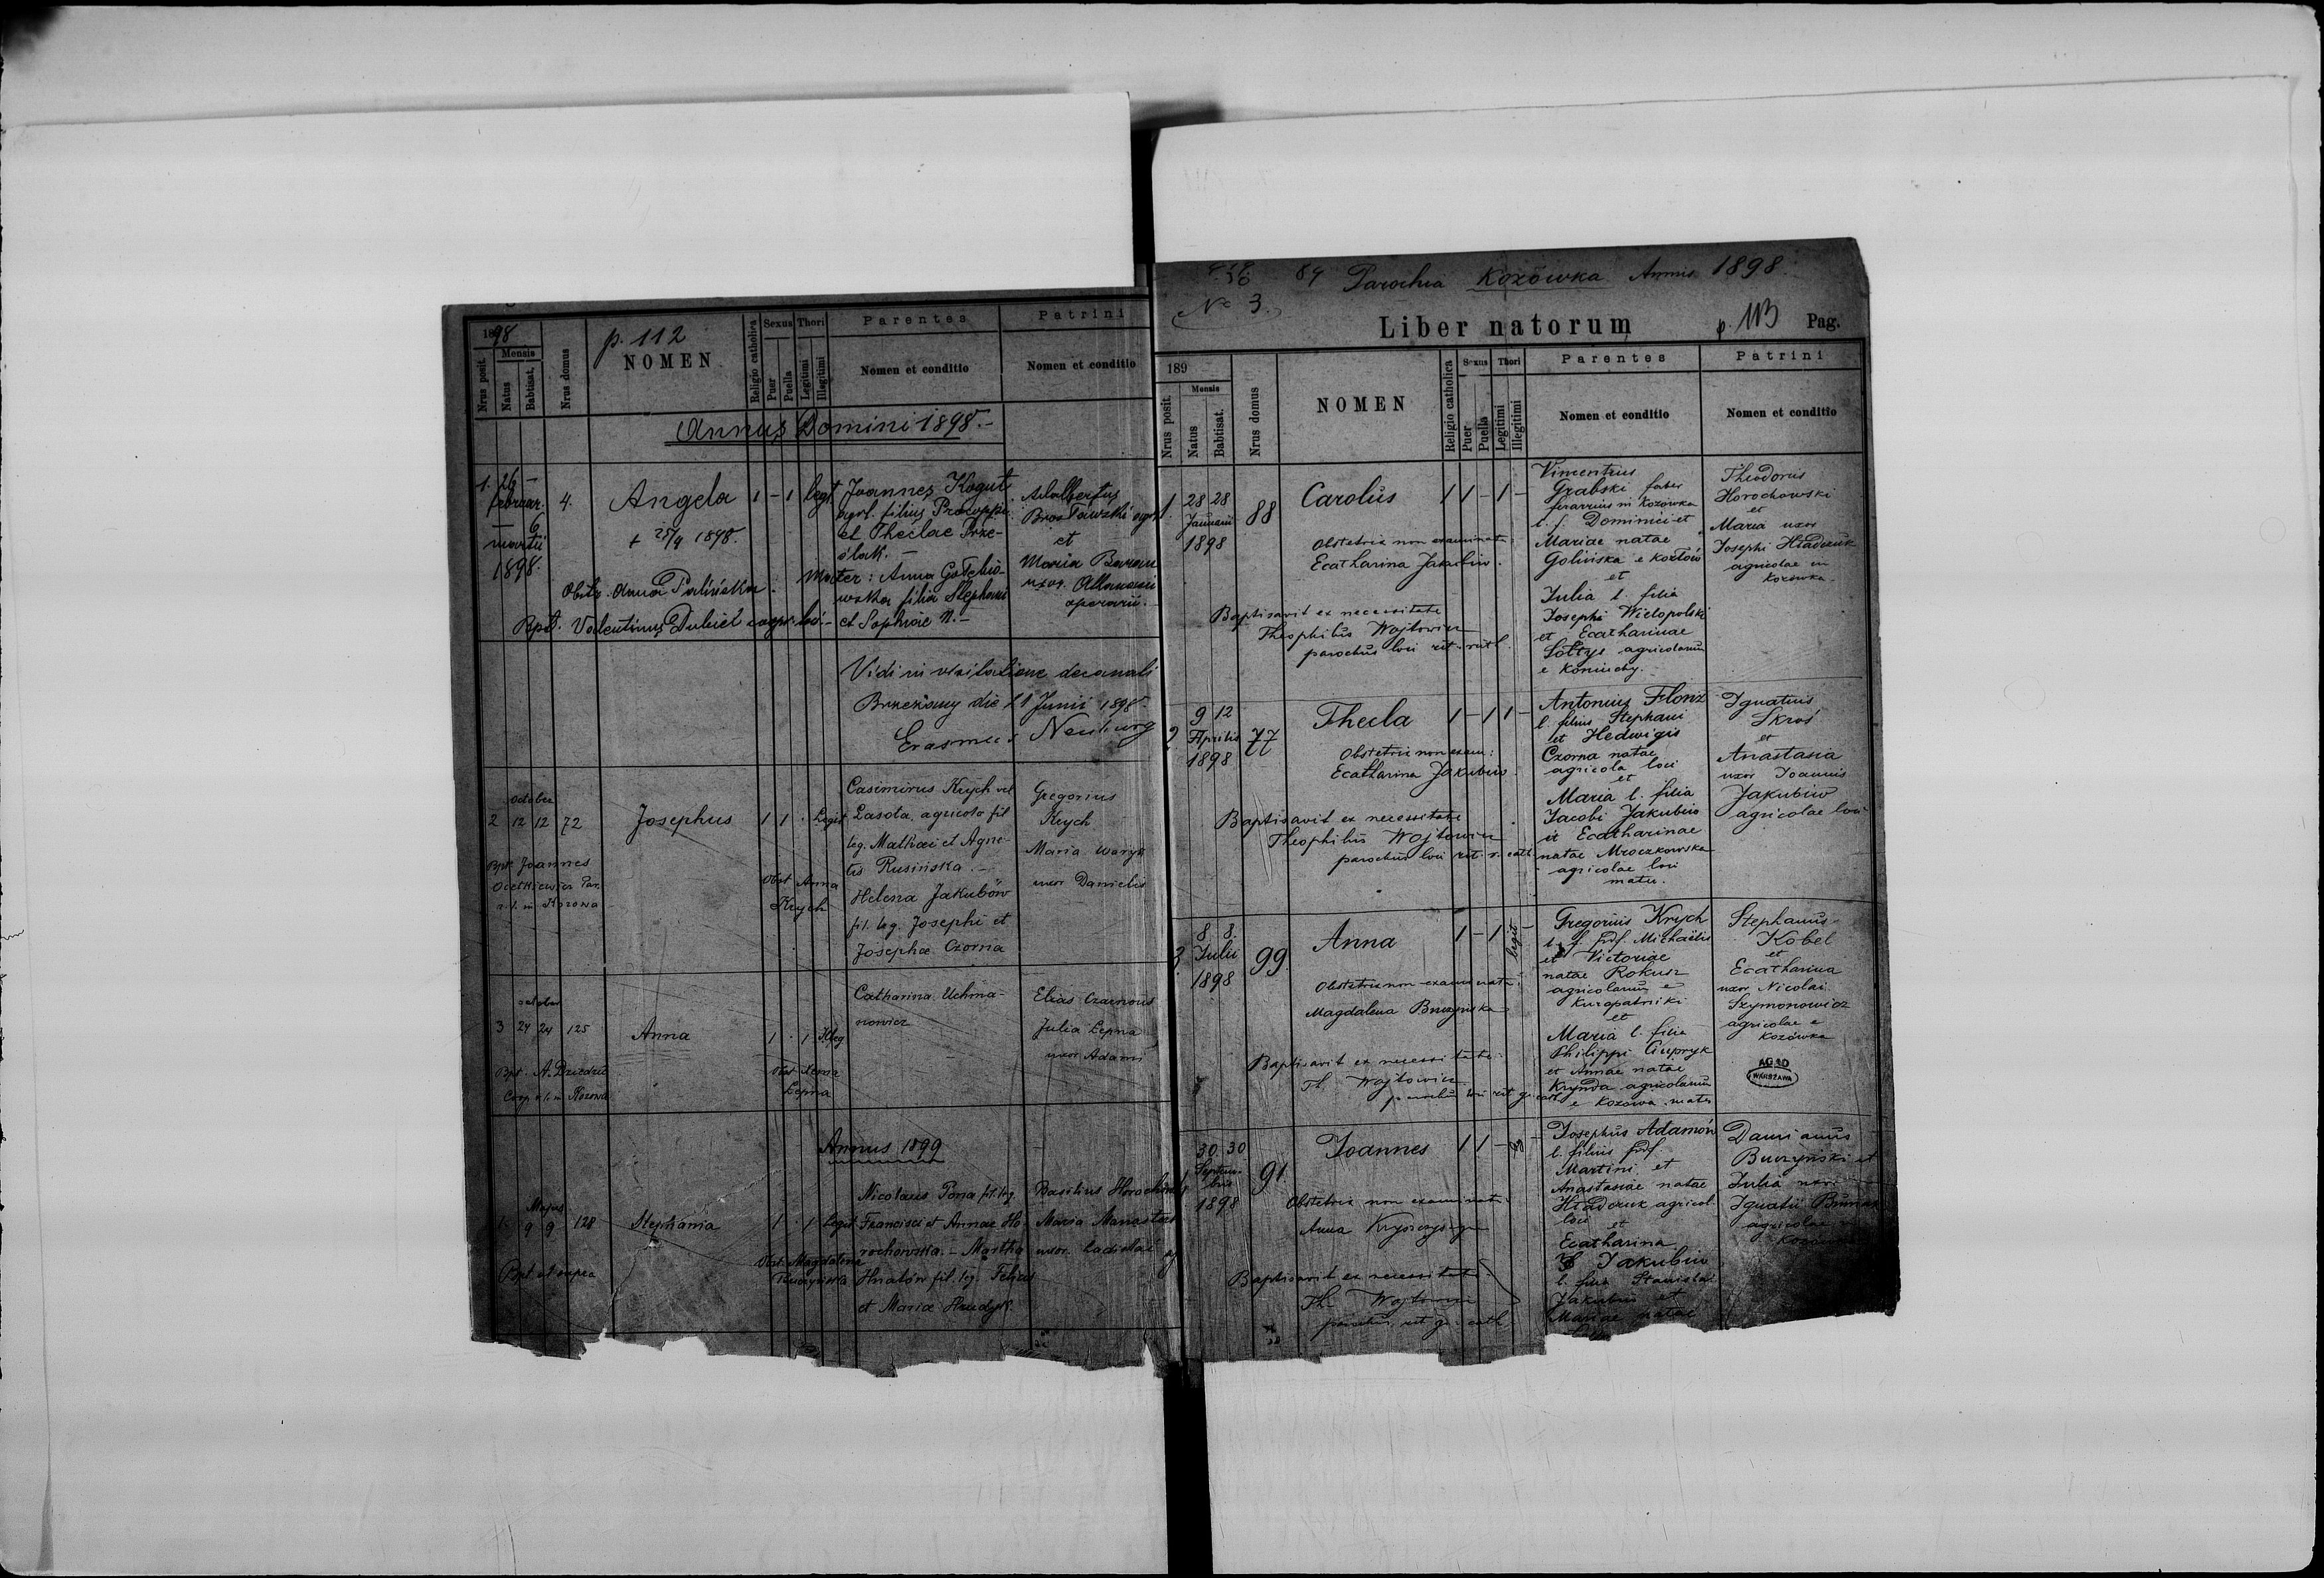 1898
Nrus posit.
Mensis
Natus
Babtisat.
Nrus domus
p. 112
NOMEN
Religio catholica
Sexus
Puer
Puella
Thori
Legitimi
Illegitimi
Parentes
Nomen et conditio
Patrini
Nomen et conditio
Annus Domini 1898.-
1. 26
februar.
6
martii
1898.
4.
Angela
+ 25/4 1898.
Obstr. Anna Palińska
Bpt. Valentinus Dubiel
1 - 1 legt
Joannes Kogut
agrl. filius Procopii
et Theclae Prze-
ślak. -
Mater: Anna
filia Stephani
et Sophiae N. -
Adalbertus
et
Maria Baran
uxor
operarii. -
Vidi in visitatione decanali
Brzeżany die 11 Junii 1898.
Erasmus Neuburg
October
2 12 12 72
Josephus
1 1 · Legit
Bpt. Joannes
r. l. in Kozowa
Obst Anna
Krych
Casimirus Krych vel
Lasota, agricola fil
leg. Mathaei et Agne-
tis Rusińska. -
Helena Jakubów
fil. leg. Josephi et
Josephae Czorna
Gregorius
Krych
Maria Waryk
uxor Danielis
october
3 24 24 125
Anna
1 · 1 Illeg
Bpt. A. Dziedzic
Coop r. l. in Kozowa
Obst Xenia
Łepna
Catharina Uchma-
nowicz
Elias Czarnous
Julia Łepna
uxor Adami
Annus 1899
Majus
1. 9 9 128
Stephania
1 · 1 Legit
Bpt. ut supra
Obst. Magdalena
Buczyńska
Nicolaus Pona fil. leg.
Francisci et Annae Ho-
rochowska. - Martha
Hnatów fil. leg. Feliae
et Mariae
Basilius
Maria
uxor Ladislai
84 Parochia Kozówka Annus 1898.
No 3.
Liber natorum
p. 113 Pag.
189
Nrus posit.
Mensis
Natus
Babtisat.
Nrus domus
NOMEN
Religio catholica
Sexus
Puer
Puella
Thori
Legitimi
Illegitimi
Parentes
Nomen et conditio
Patrini
Nomen et conditio
1. 28 28
Januarii
1898
88
Carolus
1 1 - 1 -
Obstetrix non examinata:
Ecatharina Jakubiw.
Baptisavit ex necessitate
Theophilus Wojtowicz
parochus loci rit.
Vincentius
Grabski faber
ferrarius in Kozówka
l. f. Dominici et
Mariae natae
Golińska e Kozłów
et
Julia l. filia
Josephi Wielopolski
et Ecatharinae
Sołtys agricolarum
e Koniuchy.
Theodorus
Horochowski
et
Maria uxor
Josephi Hładczuk
agricolae in
Kozówka.
2 9 12
Aprilis
1898
77
Thecla
1 - 1 1 -
Obstetrix non exam:
Ecatharina Jakubiw.
Baptisavit ex necessitate
Theophilus Wojtowicz
parochus loci rit. g. cath
Antonius Floriz
l. filius Stephani
et Hedwigis
Czorna natae
agricola loci
et
Maria l. filia
Jacobi Jakubiw
et Ecatharinae
natae Mroczkowska
agricolae loci
mater.
Ignatius
Skroś
et
Anastasia
uxor Joannis
Jakubiw
agricolae loci
3. 8 8.
Julii
1898
99.
Anna
1 - 1 legit -
Obstetrix non examinata:
Magdalena Buczyńska
Baptisavit ex necessitate:
Th. Wojtowicz
parochus loci rit g. cath
Gregorius Krych
l. f. Michaelis
et Victoriae
natae Rokusz
agricolarum e
Kuropatniki
et
Maria l. filia
Philippi Ciupryk
et Annae natae
Krynda agricolarum
e Kozowa mater
Stephanus
Kobel
et
Ecatharina
uxor Nicolai
Szymonowicz
agricolae e
Kozówka
AGAD
WARSZAWA
30 30
Septem-
bris
1898
91.
Joannes
1 1 -
Obstetrix non examinata:
Anna
Baptisavit ex necessitate:
Th. Wojtowicz
parochus rit. gr. cath
Josephus Adamów
l. filius
Martini et
Anastasiae natae
Hładczuk agricol.
loci
et
Ecatharina
Jakubiw
l. filia Stanislai
Jakubiw et
Mariae natae
Damianus
Buczyński et
Julia uxor
Ignatii
agricolae